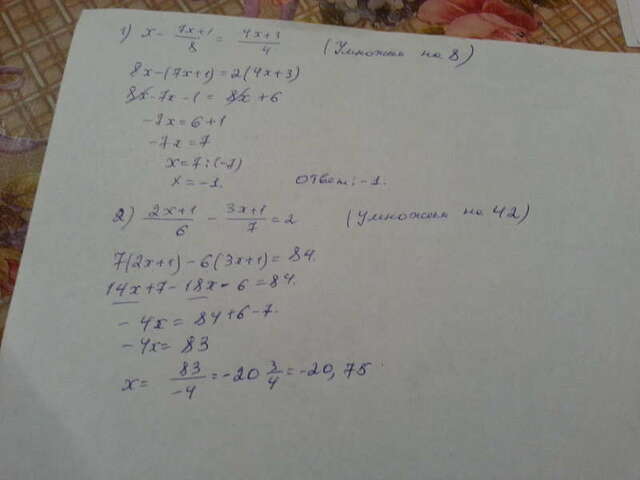 1) x - 7x+1/8 = 4x+3/4 (Умножим на 8)
8x-(7x+1)=2(4x+3)
8x-7x-1=8x+6
-7x=6+1
-7x=7
x=7:(-7)
x=-1. Ответ:-1.
2) 2x+1/6 - 3x+1/7 = 2 (Умножим на 42)
7(2x+1)-6(3x+1)=84.
14x+7-18x-6=84.
-4x=84+6-7.
-4x=83
x= 83/-4 =-20 3/4 =-20,75